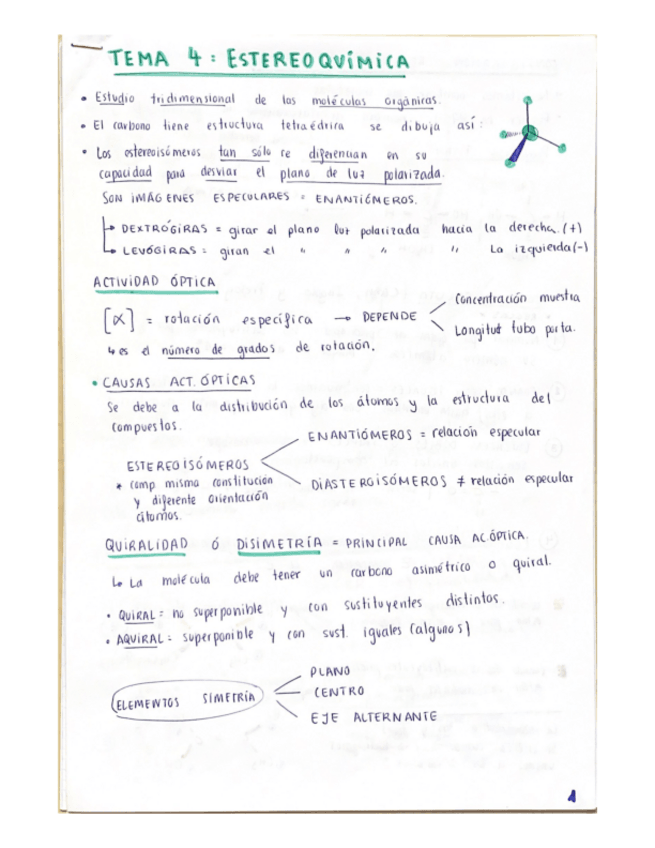 TEMA 4: ESTEREOQUÍMICA
• Estudio tridimensional de las moléculas orgánicas.
• El carbono tiene estructura tetraédrica se dibuja así:
• Los estereoisómeros tan sólo se diferencian en su
capacidad para desviar el plano de luz polarizada.
SON IMÁGENES ESPECULARES = ENANTIÓMEROS.
DEXTRÓGIRAS = girar el plano luz polarizada hacia la derecha. (+)
LEVÓGIRAS = giran el " " " " La izquierda (-)
ACTIVIDAD ÓPTICA
[α] = rotación específica → DEPENDE
Concentración muestra
Longitud tubo porta.
↳ es el número de grados de rotación.
• CAUSAS ACT. ÓPTICAS
Se debe a la distribución de los átomos y la estructura del
compuestos.
ESTEREOISÓMEROS
* comp misma constitución
y diferente orientación
átomos.
ENANTIÓMEROS = relación especular
DIASTEROISÓMEROS ≠ relación especular
QUIRALIDAD Ó DISIMETRÍA = PRINCIPAL CAUSA AC.ÓPTICA.
↳ La molécula debe tener un carbono asimétrico o quiral.
• QUIRAL = no superponible y con sustituyentes distintos.
• AQUIRAL = superponible y con sust. iguales (algunos)
ELEMENTOS SIMETRÍA
PLANO
CENTRO
EJE ALTERNANTE
1